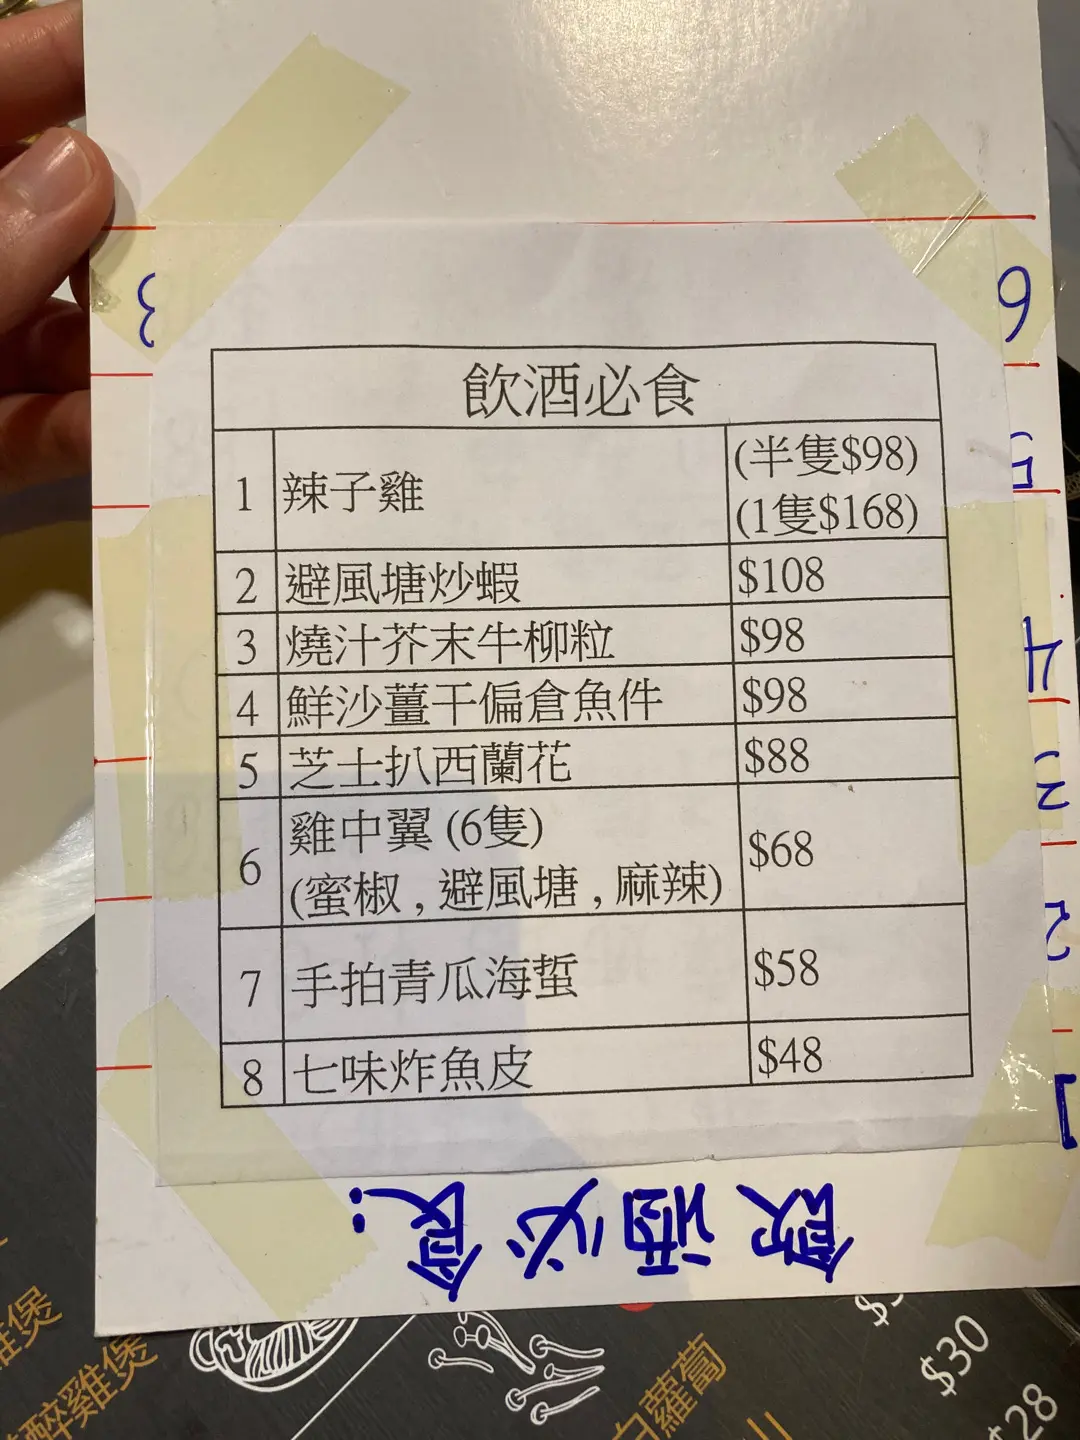 飲酒必食
1 辣子雞 (半隻$98)
(1隻$168)
2 避風塘炒蝦 $108
3 燒汁芥末牛柳粒 $98
4 鮮沙薑干偏倉魚件 $98
5 芝士扒西蘭花 $88
6 雞中翼 (6隻) $68
(蜜椒 , 避風塘 , 麻辣)
7 手拍青瓜海蜇 $58
8 七味炸魚皮 $48
飲酒必食:
1
2
3
4
5
6
醉雞煲
白蘿蔔
$30
$28